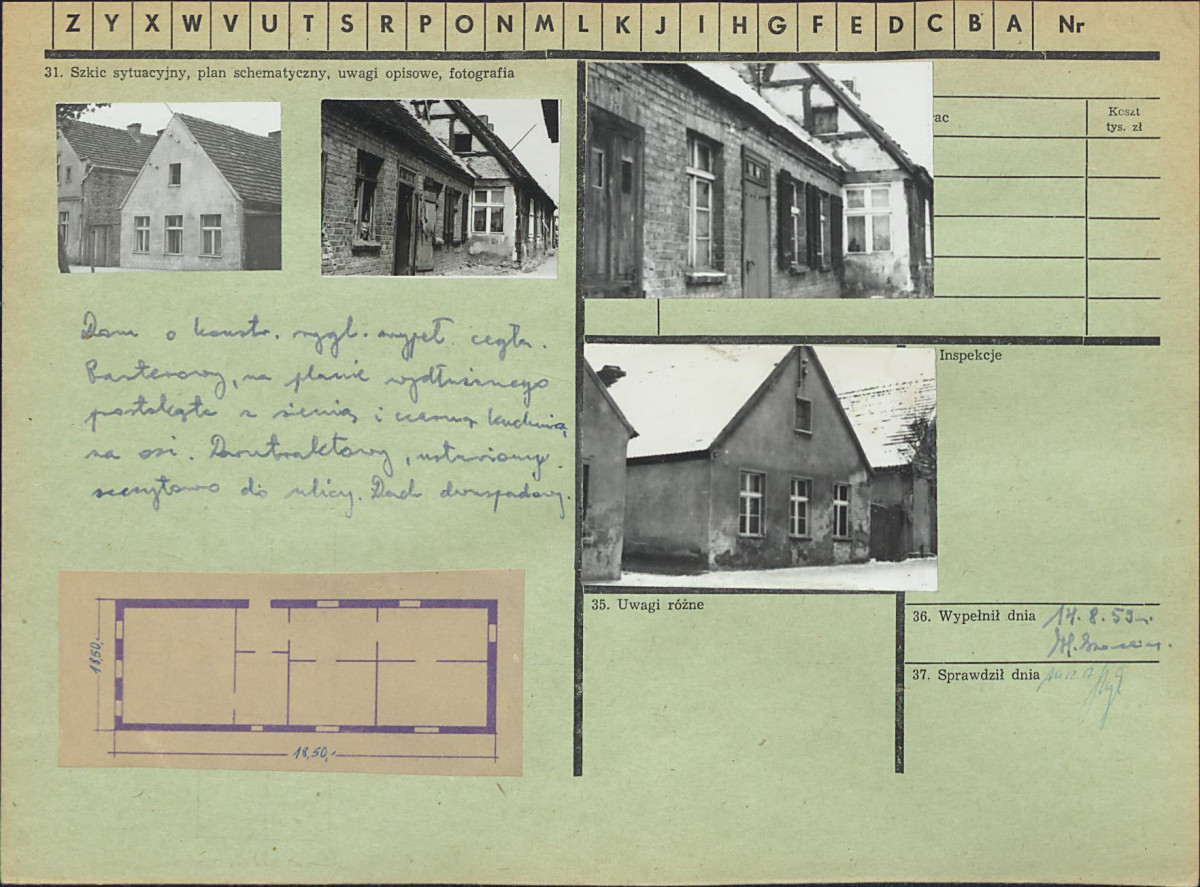 Z Y X W V U T S R P O N M L K J I H G F E D C B A Nr
31. Szkic sytuacyjny, plan schematyczny, uwagi opisowe, fotografia
Dom o konstr. rygl. wypeł. cegłą.
Parterowy, na planie wydłużonego
prostokąta z sienią i czarną kuchnią
na osi. Dwutraktowy, ustawiony
szczytowo do ulicy. Dach dwuspadowy.
18,50,-
18,50,-
rac
Koszt
tys. zł
Inspekcje
35. Uwagi różne
36. Wypełnił dnia 14.8.59 r.
37. Sprawdził dnia